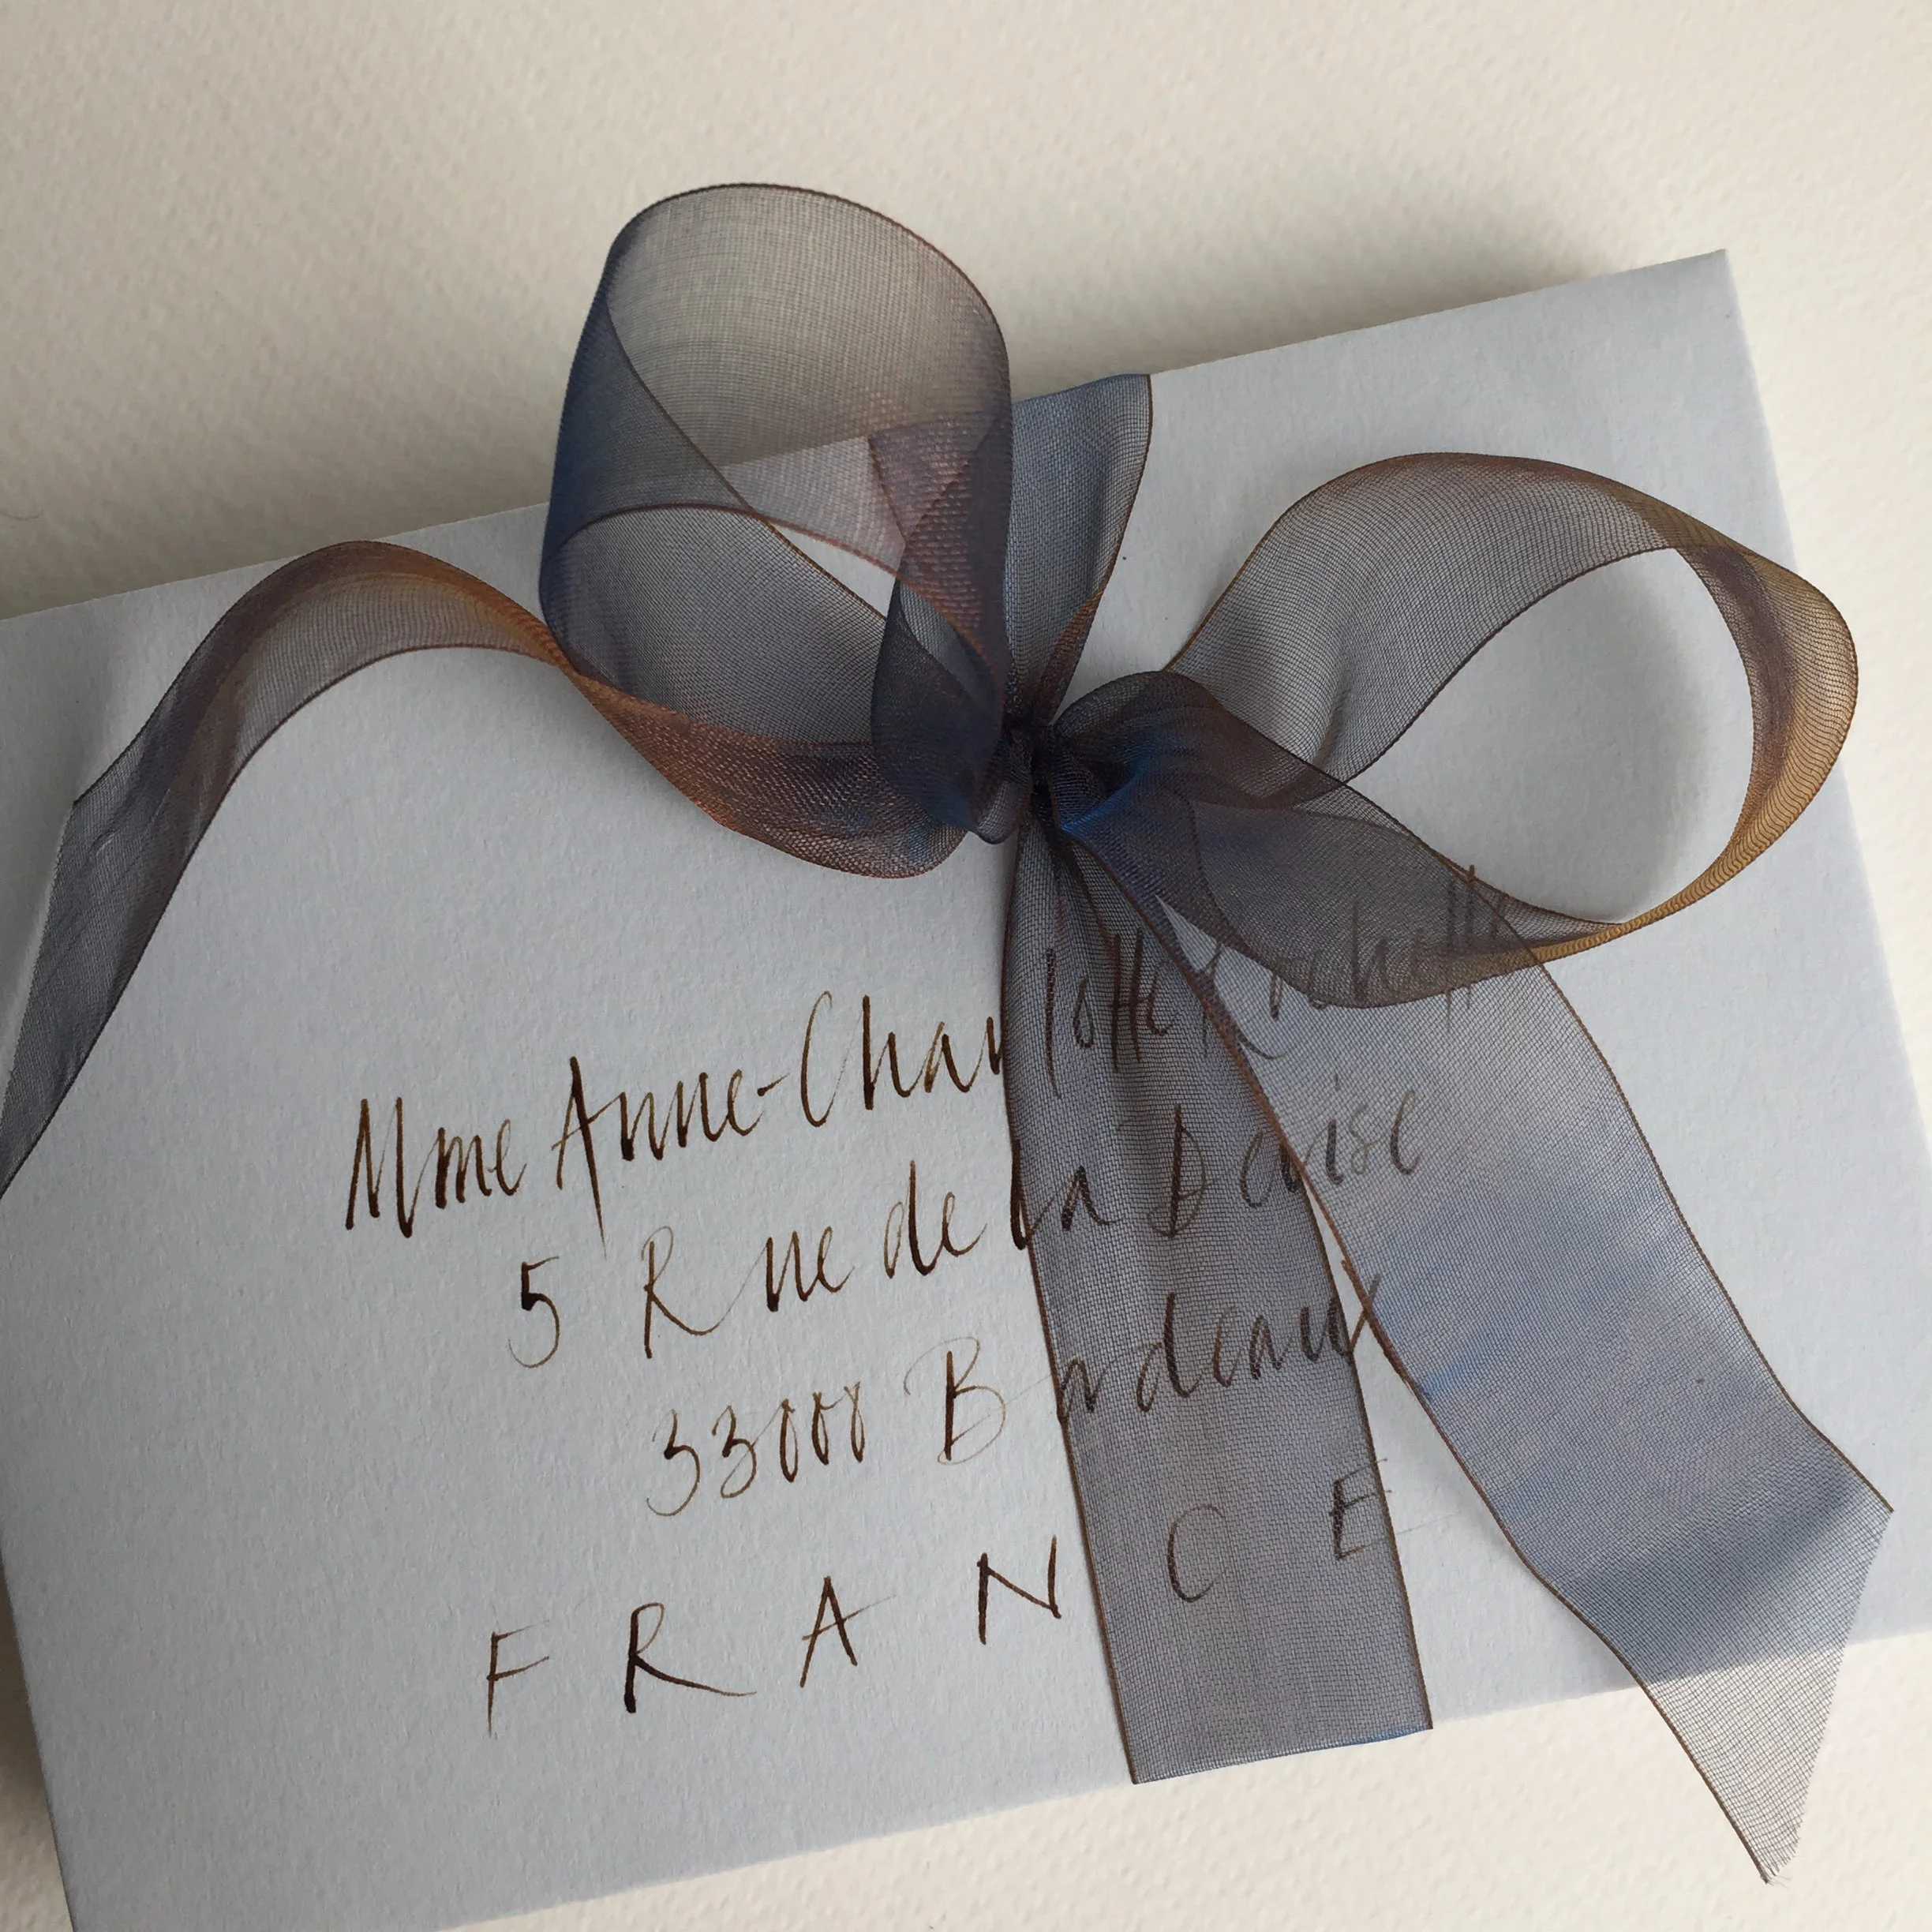 Mme Anne-Charlotte
5 Rue de la Devise
33000 Bordeaux
FRANCE